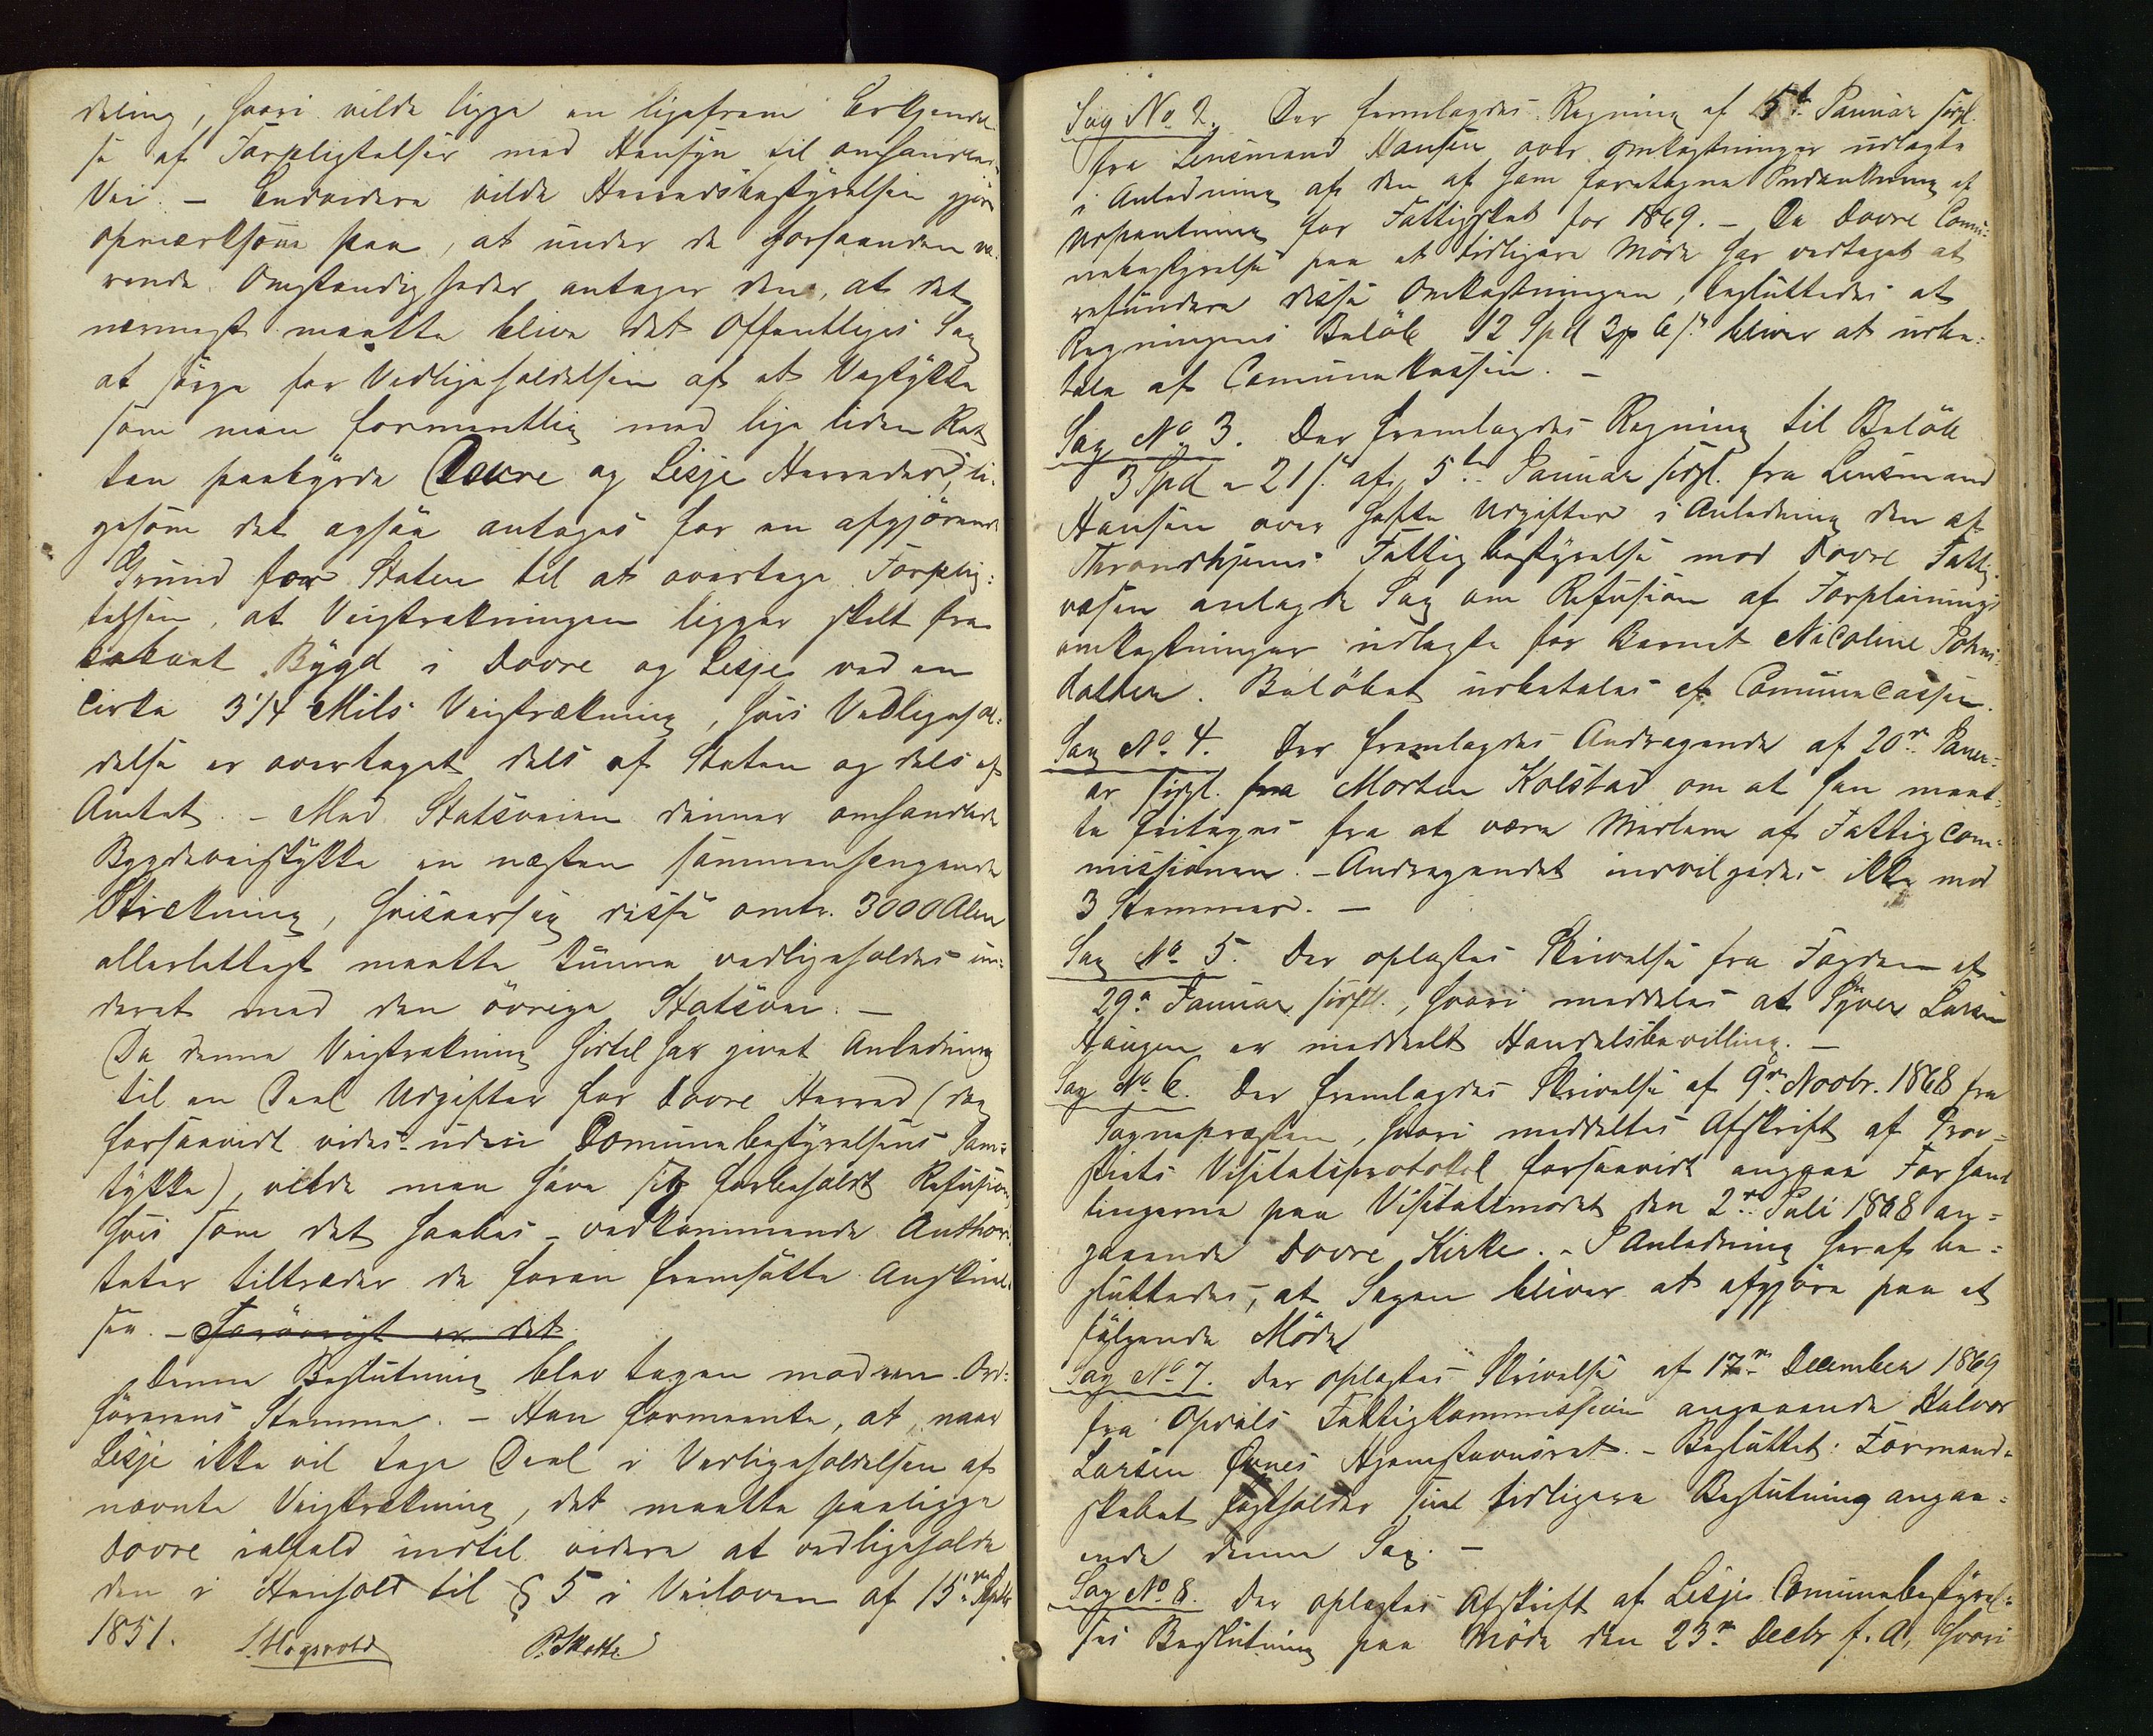 deling, hvori vilde ligge en ligefrem Erkjendel-
se af Forpligtelser med Hensyn til omhandlede
Vei. – Endvidere vilde Herredsbestyrelsen gjøre
opmærksom paa, at under de forhaanden væ-
rende Omstændigheder antager den, at det
nærmest maatte blive det Offentliges Sag
at sørge for Vedligeholdelsen af et Veistykke
som man formentlig med lige liden Ret
kan paabyrde Dovre og Lesje Herreder, li-
gesom det ogsaa antages for en afgjørende
Grund for Staten til at overtage Forplig:
telsen, at Veistrækningen ligger skilt fra
beboet Bygd i Dovre og Lesje ved en
cirka 3 1/4 Mils Veistrækning, hvis Vedligehol:
delse er overtaget dels af Staten og dels af
Amtet. – Med Statsveien danner omhandlede
Bygdeveistykke en næsten sammenhængende
Strækning, hvisaarsag disse omtr. 3000 Alen
allerlettest maatte kunne vedligeholdes un-
deret med den øvrige Statsvei. –
Da denne Veistrækning hidtil har givet Anledning
til en Deel Udgifter for Dovre Herred (dog
forsaavidt vides uden Comunebestyrelsens Sam-
tykke), vilde man have sig forbeholdt Refusion,
hvis som det haabes – vedkommende Authori-
teter tiltræder de foran fremsatte Anskuel-
ser. – Forøvrigt er det
Denne Beslutning blev tagen mod en Ord:
førerens Stemme. – Han formeente, at, naar
Lesje ikke vil tage Deel i Vedligeholdelsen af
nævnte Veistrækning, det maatte paaligge
Dovre ialfald indtil videre at vedligeholde
den i Henhold til § 5 i Veiloven af 15de Septbr
1851. P. Skotte
Sag No 2. Der fremlagdes Regning af 15de Januar sidstl.
fra Lensmand Hansen over Omkostninger udlagte
i Anledning af den af ham foretagne Inddrivning af
Udpantning for Fattigskat for 1869. – Da Dovre Comu-
nebestyrelse paa et tidligere Møde har vedtaget at
refundere disse Omkostninger, besluttedes at
Regningens Beløb 12 Spd 3 ß bliver at udbe:
tale af Comunekassen. –
Sag No 3. Der fremlagdes Regning til Beløb
3 Spd - 21 ß. af 5te Januar sidstl. fra Lensmand
Hansen over hafte Udgifter i Anledning den af
Throndhjems Fattigbestyrelse mod Dovre Fattig-
væsen anlagte Sag om Refusion af Forpleinings
omkostninger udlagte for Barnet Nicoline Johns-
datter. Beløbet udbetales af Comunecassen.
Sag No 4. Der fremlagdes Andragende af 20de Janu-
ar sidstl. fra Morten Kolstad om at han maat-
te fritages fra at være Medlem af Fattigcom-
missionen. – Andragendet indvilgedes ikke mod
3 Stemmer. –
Sag No 5. Der oplæstes Skrivelse fra Fogden af
29de Januar sidstl., hvori meddeles at Syver Larsen
Haugen er meddeelt Handelsbevilling. –
Sag No 6. Der fremlagdes Skrivelse af 9de Novbr. 1868 fra
Sognepræsten, hvori meddeltes Afskrift af Prov-
stiets Visitatsprotokol forsaavidt angaar Forhand
lingerne paa Visitatsmødet den 2de Juli 1868 an-
gaaende Dovre Kirke. – I Anledning heraf be-
sluttedes, at Sagen bliver at afgjøre paa et
følgende Møde.
Sag No 7. Der oplæstes Skrivelse af 17de December 1869
fra Opdals Fattigkommission angaaende Halvor
Larsen Hjemstavnsret. – Besluttet: Formand-
skabet fastholder sin tidligere Beslutning angaa-
ende denne Sag. –
Sag No 8. Der oplæstes Afskrift af Lesje Comunebestyrel-
ses Beslutning paa Møde den 23de Decbr f. A, hvori